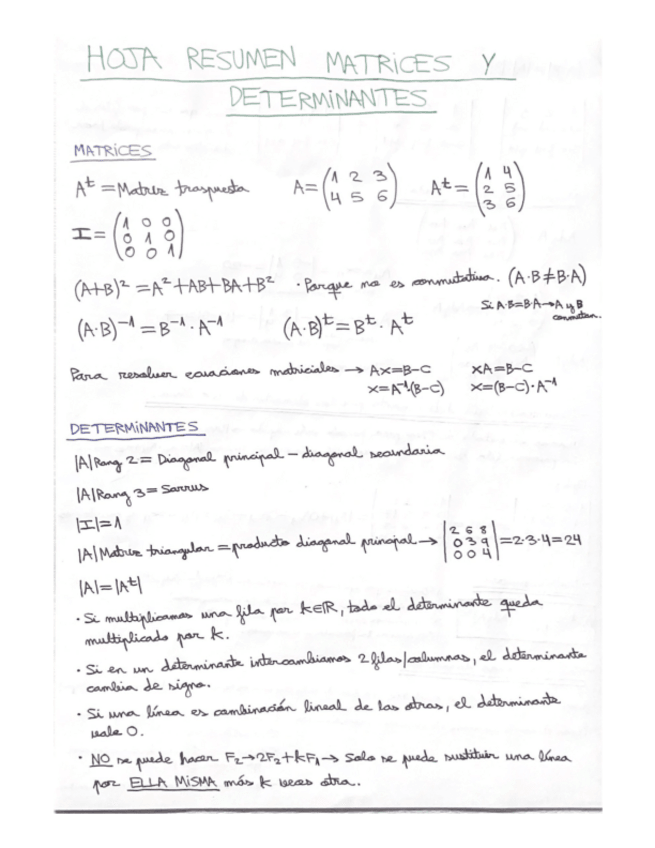 HOJA RESUMEN MATRICES Y
DETERMINANTES
MATRICES
Aᵗ = Matriz traspuesta   A = (1 2 3   Aᵗ = (1 4
4 5 6)   2 5
3 6)
I = (1 0 0
0 1 0
0 0 1)
(A+B)² = A² + AB + BA + B² · Porque no es conmutativa. (A·B ≠ B·A)
Si A·B=B·A → A y B
conmutan.
(A·B)⁻¹ = B⁻¹ · A⁻¹   (A·B)ᵗ = Bᵗ · Aᵗ
Para resolver ecuaciones matriciales → AX=B-C   XA=B-C
X=A⁻¹(B-C)   X=(B-C)·A⁻¹
DETERMINANTES
|A| Rang 2 = Diagonal principal - diagonal secundaria
|A| Rang 3 = Sarrus
|I| = 1
|A| Matriz triangular = producto diagonal principal → |2 6 8
0 3 9
0 0 4| = 2·3·4 = 24
|A| = |Aᵗ|
· Si multiplicamos una fila por k∈ℝ, todo el determinante queda
multiplicado por k.
· Si en un determinante intercambiamos 2 filas/columnas, el determinante
cambia de signo.
· Si una línea es combinación lineal de las otras, el determinante
vale 0.
· NO se puede hacer F₂→2F₂+kF₁ → Solo se puede sustituir una línea
por ELLA MISMA más k veces otra.